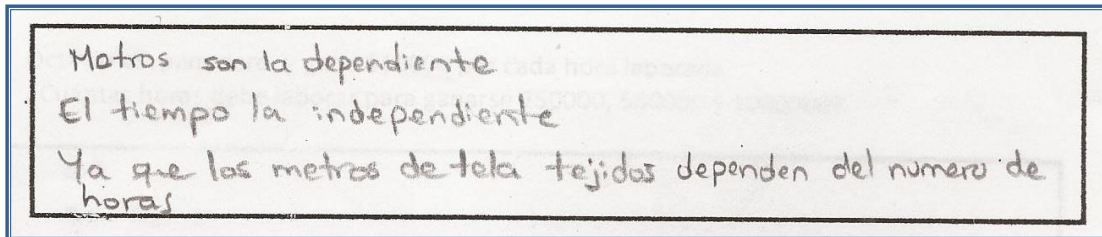 Metros son la dependiente
El tiempo la independiente
Ya que los metros de tela tejidos dependen del numero de
horas